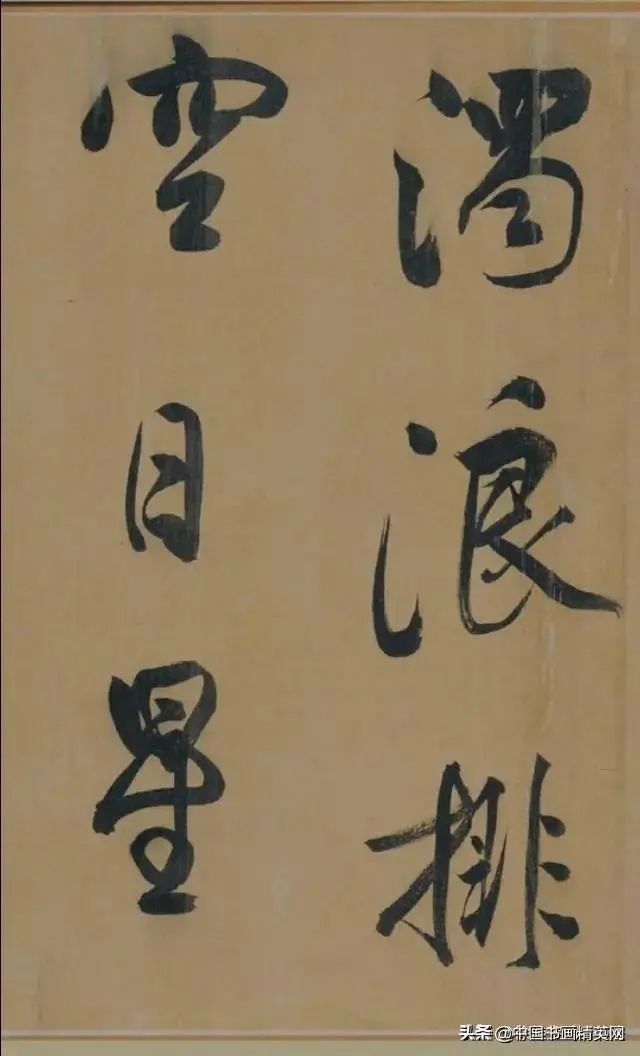 濁浪排
空日星
头条 @中国书画精英网